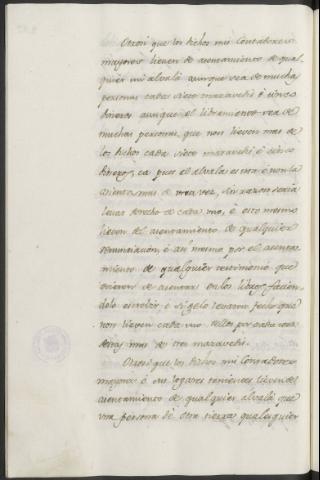 Otrosí que los dichos mis Contadores
mayores lleven de asentamiento de qual
quier mi alvalá aunque sea de mucha
personas cada siete maravedis é cinco
dineros aunque el libramiento sea de
muchas personas, que non lleven mas de
los dichos cada siete maravedis é cinco
dineros, ca pues el alvala es uno é non la
asientan mas de una vez, sin razon seria
levar derecho de cada uno, é esto mesmo
lleven del asentamiento de qualquier
renunciación, é asi mesmo por el asenta
miento de qualquier testimonio que
ovieren de asentar en los libros, facien
dolo escrebir, é si gelo levaren fecho que
non lleven cada uno dellos por cada cosa
destas mas de tres maravedis.
Otrosí que los dichos mis Contadores
mayores é sus logares tenientes lleven del
asentamiento de qualquier alvalá que
una persona dé otra tierra qualesquier